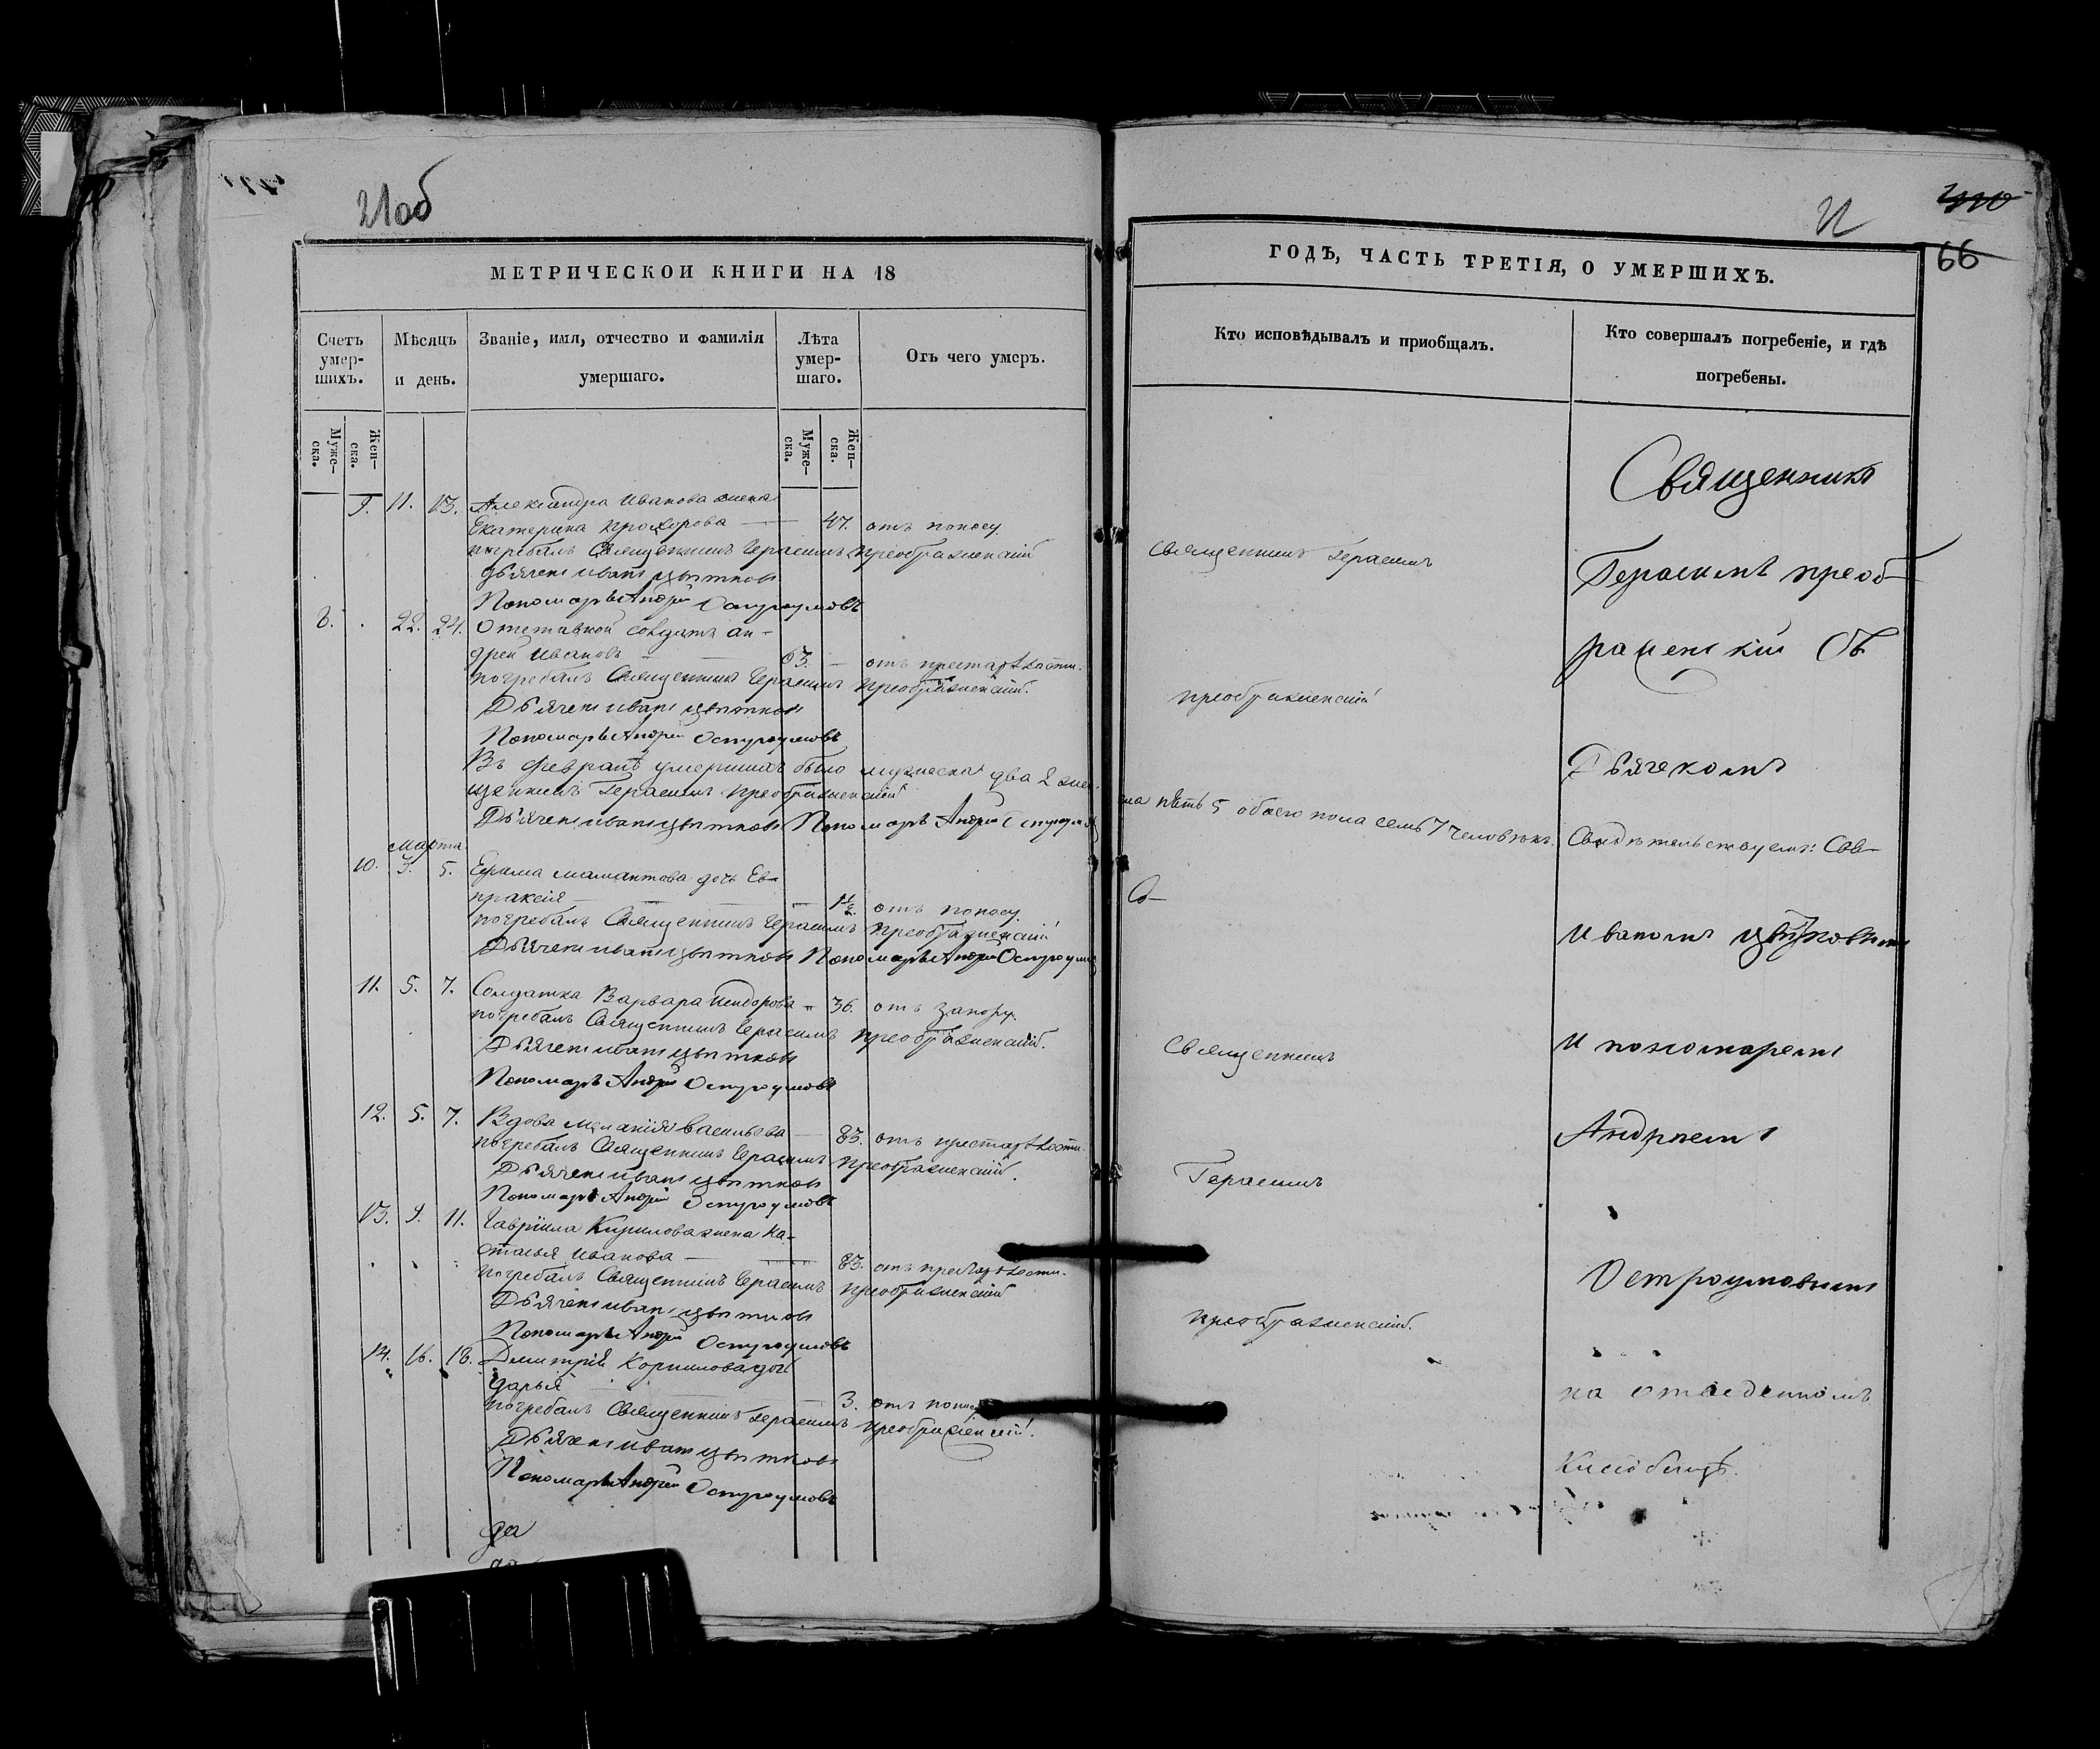 21об
МЕТРИЧЕСКОЙ КНИГИ НА 18
Счетъ умер-шихъ.
Мѣсяцъ и день.
Званіе, имя, отчество и фамилія умершаго.
Лѣта умер-шаго.
Отъ чего умеръ.
Муже-ска.
Жен-ска.
Муже-ска.
Жен-ска.
9. 11. 13. Александра Иванова жена
Екатерина Прохорова — 47. отъ поносу.
погребалъ Священникъ Герасимъ Преображенскій
Дьячекъ Иванъ Цвѣтковъ
Пономарь Андрей Остроумовъ
8. 22. 24. Отставной солдатъ Ан-
дрей Ивановъ — 63. — отъ престарѣлости.
погребалъ Священникъ Герасимъ Преображенскій.
Дьячекъ Иванъ Цвѣтковъ
Пономарь Андрей Остроумовъ
Въ Февралѣ умершихъ было мужеска два 2 жен-
щенникъ Герасимъ Преображенскій
Дьячекъ Иванъ Цвѣтковъ Пономарь Андрей Остроумов
Марта
10. 3. 5. Ефима Мамантова дочь Ев-
праксія — отъ поносу.
погребалъ Священникъ Герасимъ Преображенскій
Дьячекъ Иванъ Цвѣтковъ Пономарь Андрей Остроумов
11. 5. 7. Солдатка Варвара — 36. отъ запору.
погребалъ Священникъ Герасимъ Преображенскій.
Дьячекъ Иванъ Цвѣтковъ
Пономарь Андрей Остроумовъ
12. 5. 7. Вдова Меланія Васильева — 83. отъ престарѣлости.
погребалъ Священникъ Герасимъ Преображенскій.
Дьячекъ Иванъ Цвѣтковъ
Пономарь Андрей Остроумовъ
13. 9. 11. Гавріила Кирилова жена На-
сталья Иванова — 83. отъ престарѣлости.
погребалъ Священникъ Герасимъ Преображенскій
Дьячекъ Иванъ Цвѣтковъ
Пономарь Андрей Остроумовъ
14. 16. 18. Димитрія Корнилова дочь
Дарья — 3. отъ поносу
погребалъ Священникъ Герасимъ Преображенскій.
Дьячекъ Иванъ Цвѣтковъ
Пономарь Андрей Остроумовъ
да
66
ГОДЪ, ЧАСТЬ ТРЕТІЯ, О УМЕРШИХЪ.
Кто исповѣдывалъ и пріобщалъ.
Кто совершалъ погребеніе, и гдѣ погребены.
Священникъ Герасимъ
Преображенскій
ска пѣть 5 обоего пола семь 7 человѣкъ. Свидѣтельствуемъ: Свя-
Священникъ
Герасимъ
Преображенскій.
Священникъ
Герасимъ Преоб-
раженскій Съ
Дьячекомъ
Иваномъ Цвѣтковымъ
И пономаремъ
Андреемъ
Остроумовымъ
на отведенномъ
кладбищѣ.